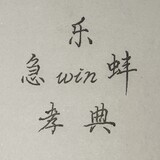 乐
急 win 蚌
孝 典